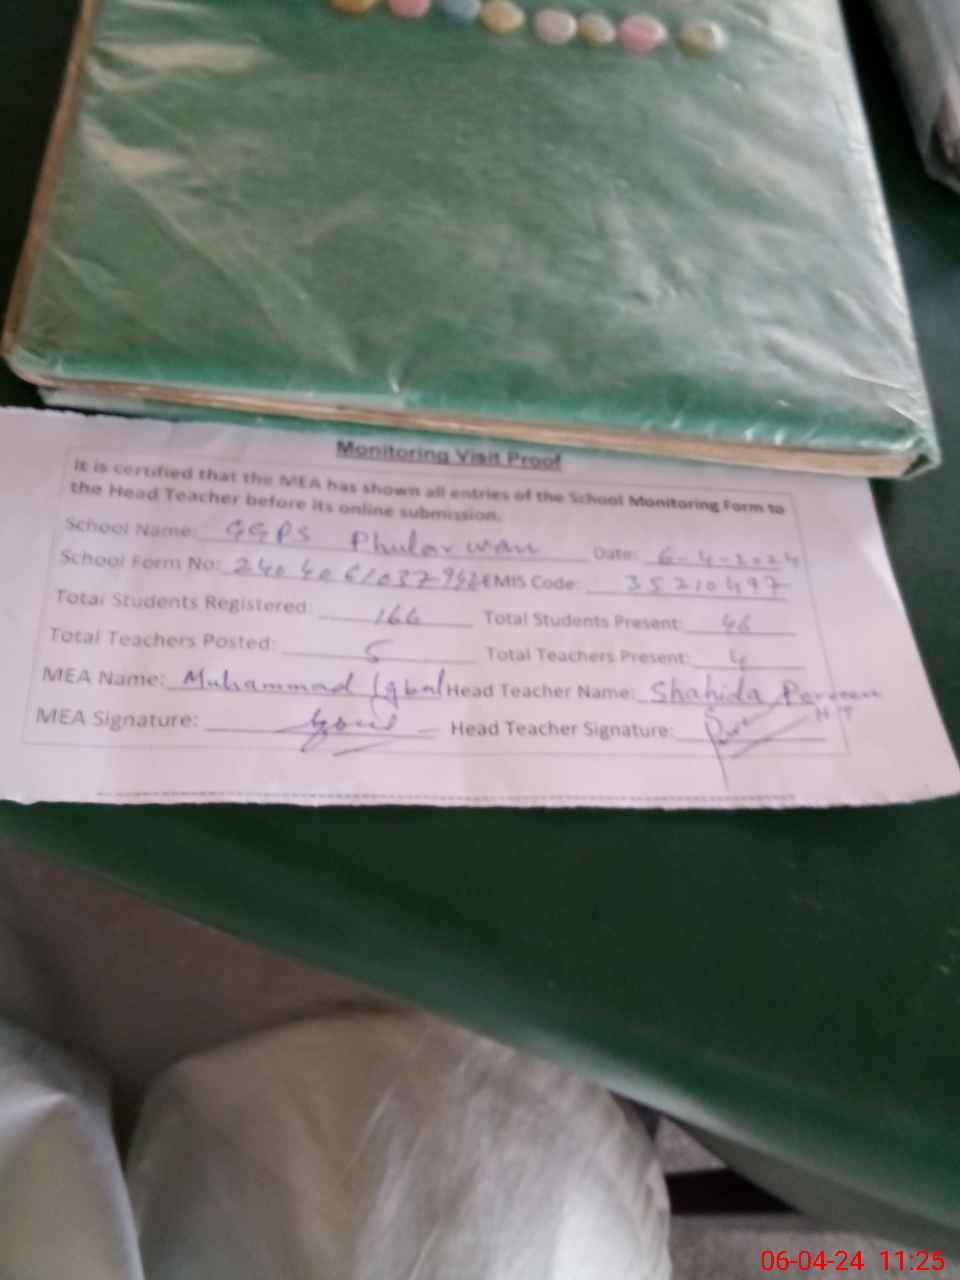 Monitoring Visit Proof
It is certified that the MEA has shown all entries of the School Monitoring Form to
the Head Teacher before its online submission.
School Name: GGPS Phularwan Date: 6-4-2024
School Form No: EMIS Code: 35210497
Total Students Registered: 166 Total Students Present: 46
Total Teachers Posted: 5 Total Teachers Present: 4
MEA Name: Muhammad Iqbal Head Teacher Name: Shahida Perveen
MEA Signature: Head Teacher Signature:
06-04-24 11:25